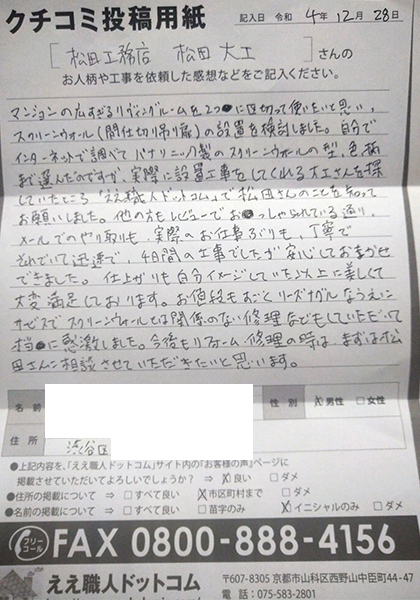 クチコミ投稿用紙
記入日 令和 4年 12月 28日
[ 松田工務店 松田大工 ]さんの
お人柄や工事を依頼した感想などをご記入ください。
マンションの広すぎるリヴィングルームを2つに区切って使いたいと思い、
スクリーンウォール(間仕切り吊り扉)の設置を検討しました。自分で
インターネットで調べてパナソニック製のスクリーンウォールの型、色、柄
まで選んだのですが、実際に設置工事をしてくれる大工さんを探
していたところ「ええ職人ドットコム」で松田さんのことを知って
お願いしました。他の方もレビューでおっしゃられている通り、
メールでのやり取りも、実際のお仕事ぶりも、丁寧で
それでいて迅速で、4日間の工事でしたが安心しておまかせ
できました。仕上がりも自分イメージしていた以上に美しくて
大変満足しております。お値段もすごくリーズナブルなうえに
サービスでスクリーンウォールとは関係のない修理などもしていただいて
に感激しました。今後もリフォーム、修理の時は、まずは松
田さんに相談させていただきたいと思います。
名前
性別 X男性 □女性
住所 渋谷区
●上記内容を、「ええ職人ドットコム」サイト内の「お客様の声」ページに
掲載させていただいてよろしいでしょうか? ⇒ X良い □ダメ
●住所の掲載について ⇒ □すべて良い X市区町村まで □ダメ
●名前の掲載について ⇒ □すべて良い □苗字のみ Xイニシャルのみ □ダメ
フリーコール FAX 0800-888-4156
ええ職人ドットコム
〒607-8305 京都市山科区西野山中臣町44-47
電話:075-583-2801